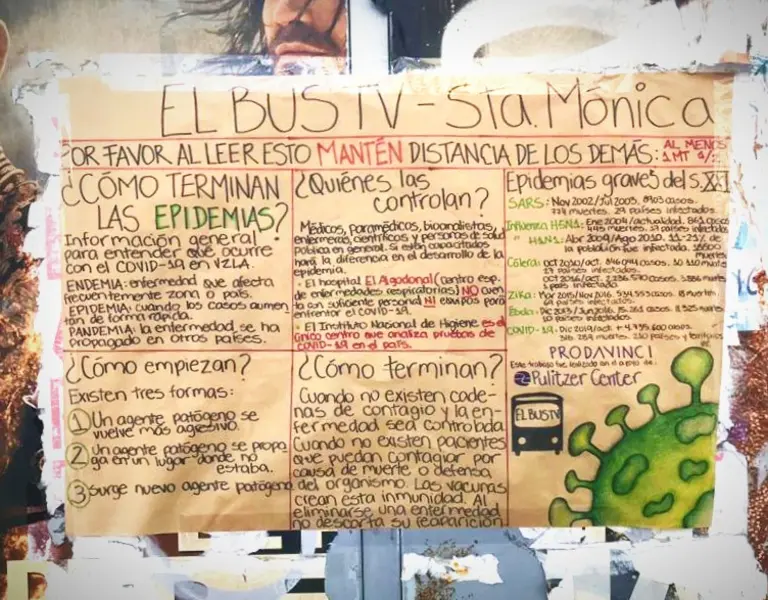 EL BUS TV - Sta. Mónica
POR FAVOR AL LEER ESTO MANTÉN DISTANCIA DE LOS DEMÁS: AL MENOS
1 MT
¿CÓMO TERMINAN
LAS EPIDEMIAS?
Información general
para entender que ocurre
con el COVID-19 en VZLA.
ENDEMIA: enfermedad que afecta
frecuentemente zona o país.
EPIDEMIA: cuando los casos aumen-
tan de forma rápida.
PANDEMIA: la enfermedad se ha
propagado en otros países.
¿Quiénes las
controlan?
Médicos, paramédicos, bioanalistas,
enfermeras, científicos y personas de salud
pública en general. Si están capacitados
hará la diferencia en el desarrollo de la
epidemia.
• El hospital El Algodonal (centro esp.
de enfermedades respiratorias) NO cuen
ta con suficiente personal NI equipos para
enfrentar el COVID-19.
• El Instituto Nacional de Higiene es el
único centro que analiza pruebas de
COVID-19 en el país.
Epidemias graves del s.XXI
SARS: Nov 2002/Jul 2003. casos.
774 muertes. 29 países infectados.
Influenza H5N1: Ene 2004/actualidad. 861 casos
455 muertes. 17 países infectados
" H1N1: Abr 2009/Ago 2010. 11-21% de
la población fue infectada.
muertes
Cólera: oct 2010/act.
países infectados.
oct
1 país infectado
Zika: Mar 2015/Nov 2016. muertes
países infectados.
Ébola: Dic 2013/Jun 2016. casos
10 países infectados
COVID-19: Dic 2019/act. + 4.435.600 casos.
210 países y territorios
PRODAVINCI
Este trabajo fue realizado con el apoyo de:
Pulitzer Center
EL BUS TV
¿Cómo empiezan?
Existen tres formas:
1 Un agente patógeno se
vuelve más agresivo.
2 Un agente patógeno se propa
ga en un lugar donde no
estaba.
3 Surge nuevo agente patógeno
¿Cómo terminan?
Cuando no existen cade-
nas de contagio y la en-
fermedad sea controlada
Cuando no existen pacientes
que puedan contagiar por
causa de muerte o defensa
del organismo. Las vacunas
crean esta inmunidad. Al
eliminarse, una enfermedad
no descarta su reaparición